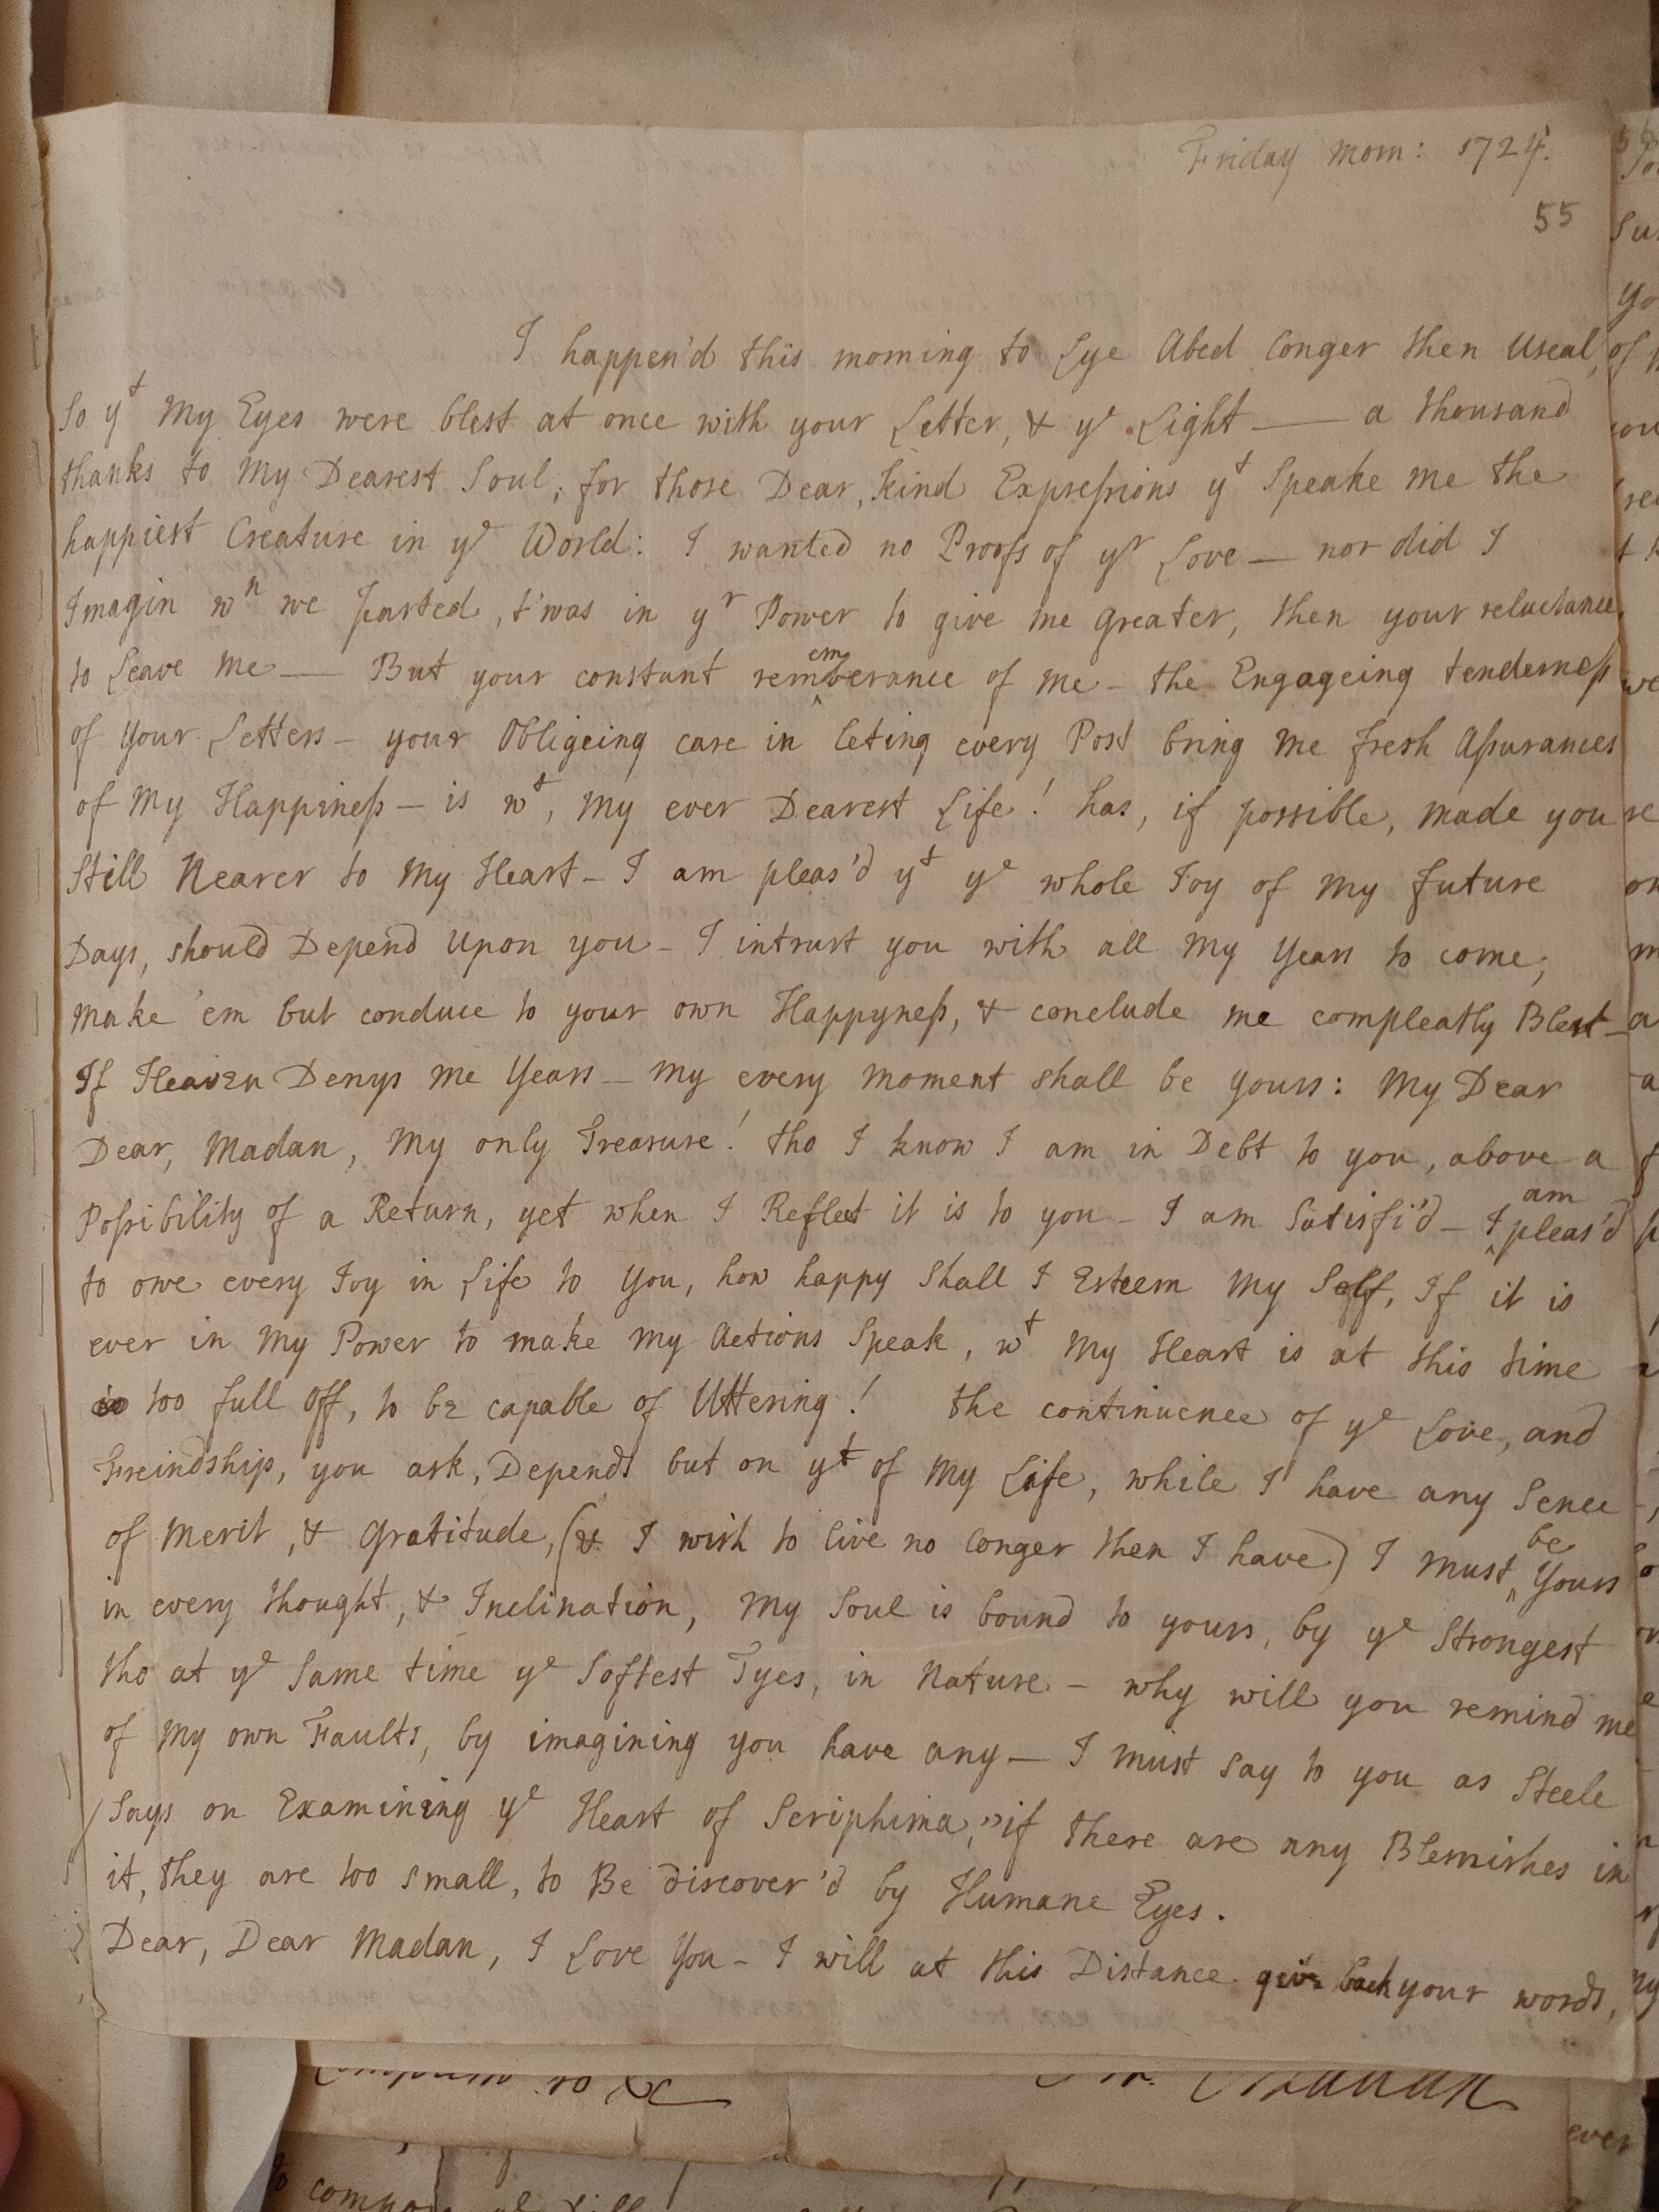 Friday morn: 1724.
55
I happen'd this morning to Lye Abed longer then Useal,
So yt My Eyes were blest at once with your Letter, & ye Light — a thousand
thanks to My Dearest Soul, for those Dear, kind Expressions yt Speake me the
happiest Creature in ye World: I wanted no Proofs of yr Love — nor did I
Imagin wn we parted, t'was in yr Power to give me greater, then your reluctance
to Leave me — But your constant rememberance of me - the Engageing tenderness
of your Letters - your Obligeing care in leting every Post bring me fresh Assurances
of My Happiness - is wt, my ever Dearest Life! has, if possible, made you
Still Nearer to My Heart - I am pleas'd yt ye whole Joy of My future
Days, should Depend Upon you - I intrust you with all My Years to come,
Make 'em but conduce to your own Happyness, & conclude me compleatly Blest -
If Heaven Denys me Years - my every moment shall be yours: My Dear
Dear, Madan, My only Treasure! tho I know I am in Debt to you, above a
Possibility of a Return, yet when I Reflect it is to you - I am Satisfi'd - I am pleas'd
to owe every Joy in Life to You, how happy Shall I Esteem My Self, If it is
ever in My Power to make My Actions Speak, wt My Heart is at this time
too full Off, to be capable of Uttering! the continuence of ye Love, and
Freindship, you ask, Depends but on yt of My Life, while I have any Sence
of Merit, & Gratitude, (& I wish to live no longer then I have) I must be Yours
in every thought, & Inclination, My Soul is bound to yours, by ye Strongest
tho at ye Same time ye Softest Tyes, in Nature - why will you remind me
of My own Faults, by imagining you have any - I must Say to you as Steele
Says on Examining ye Heart of Seriphima, "if there are any Blemishes in
it, they are too small, to Be discover'd by Humane Eyes.
Dear, Dear Madan, I Love You - I will at this Distance give back your words,